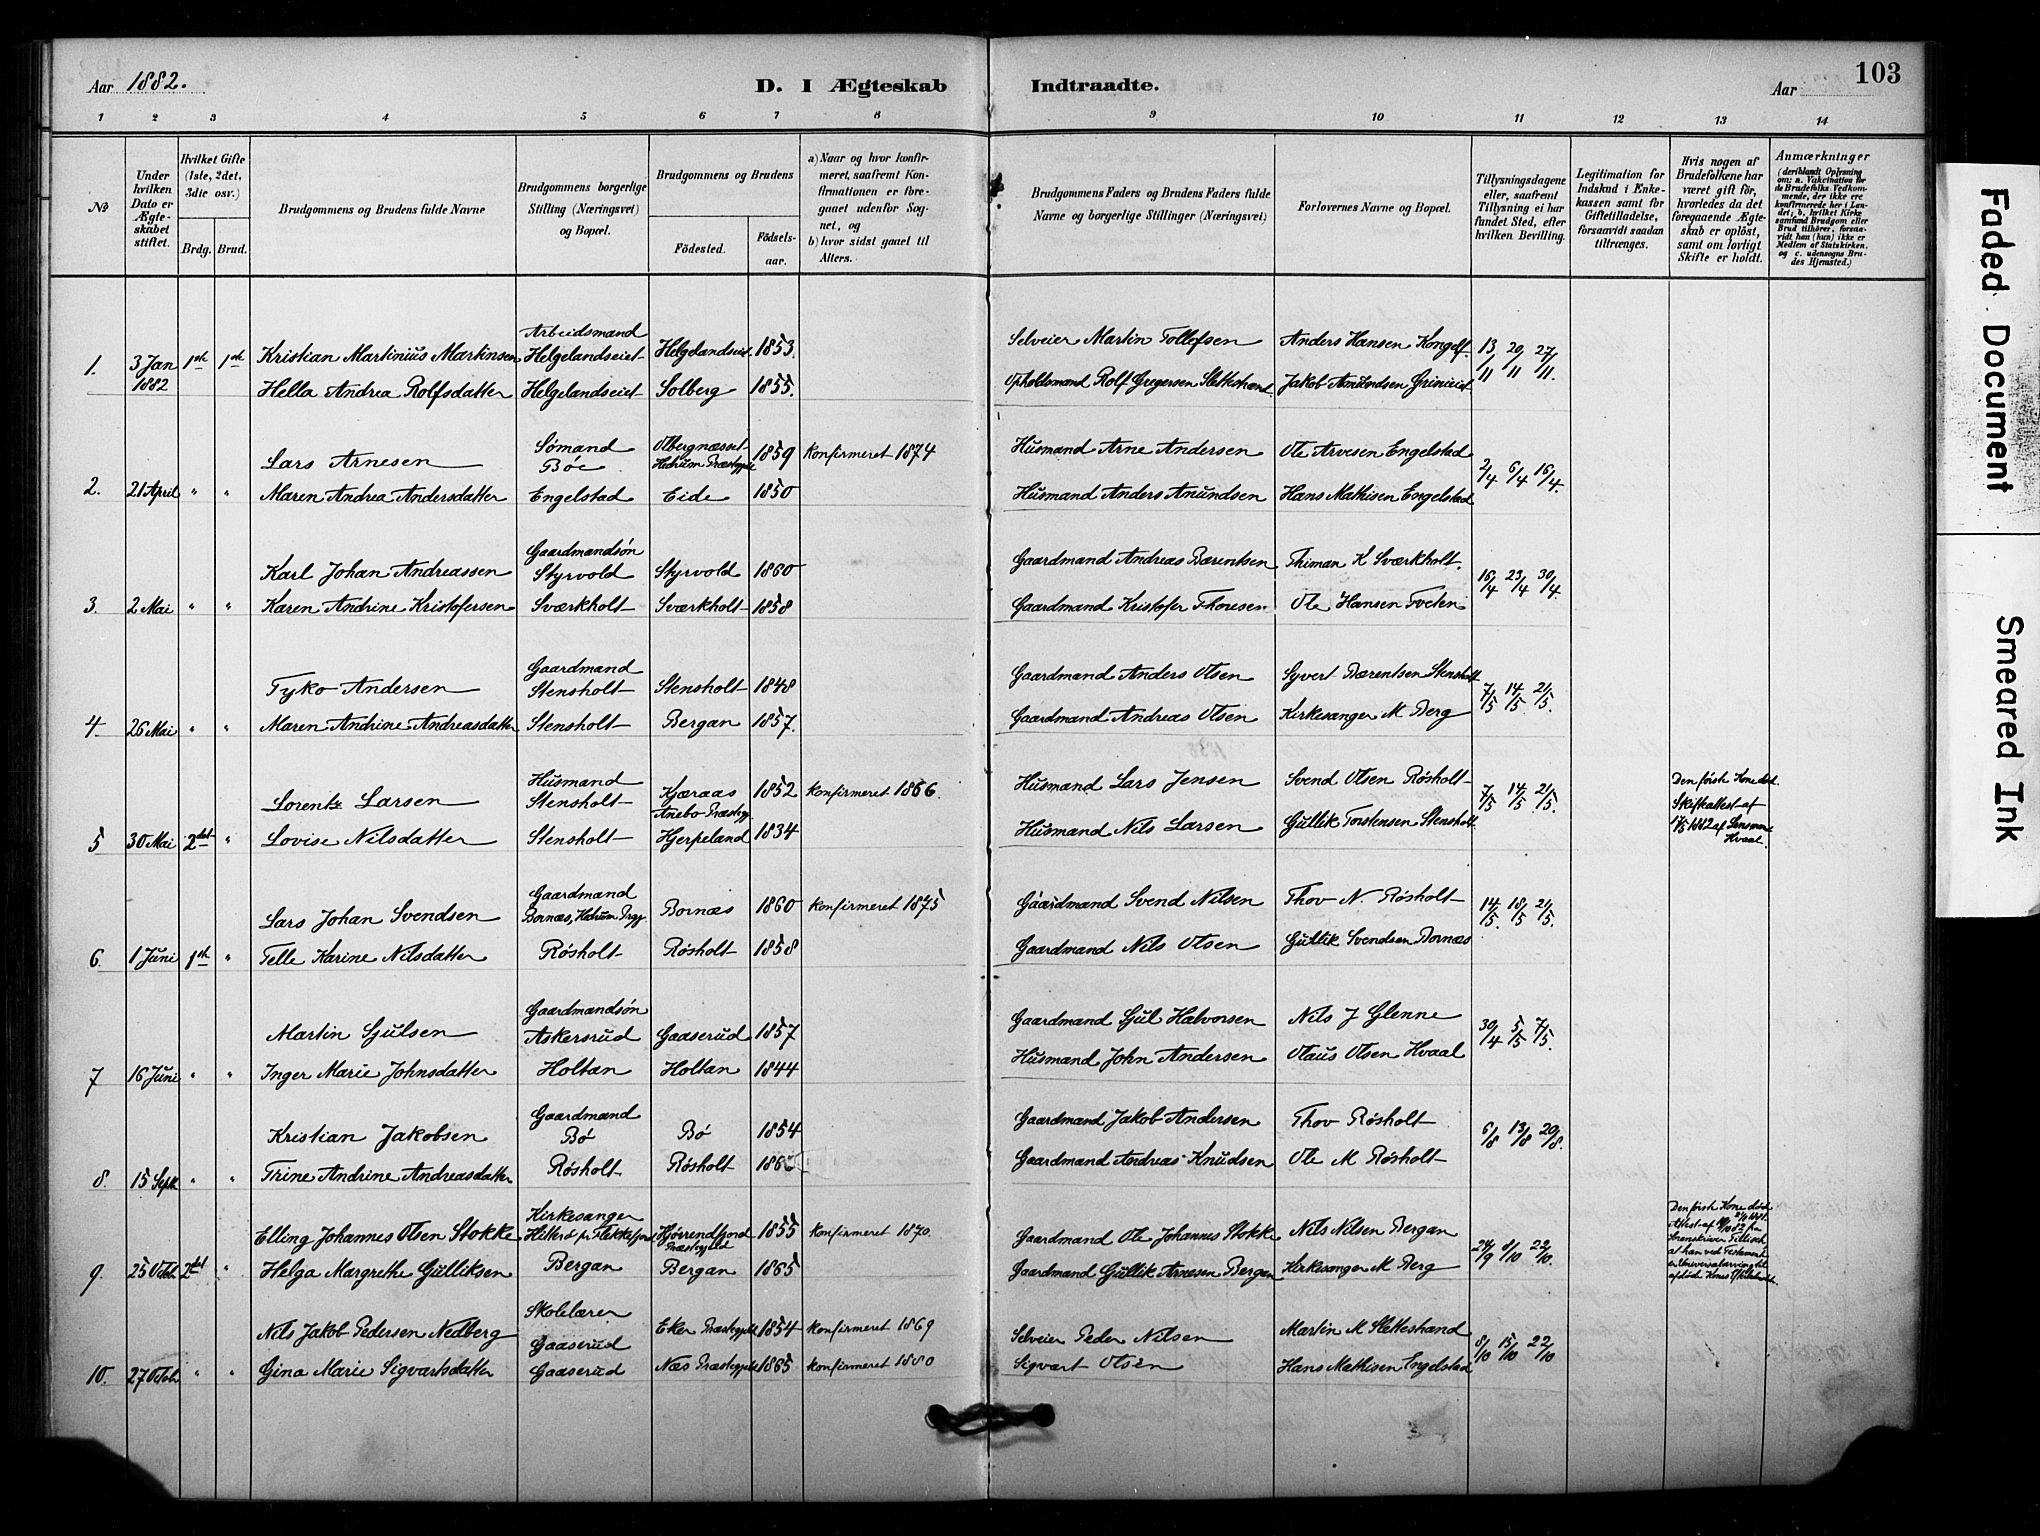 Aar 1882.
D. I Ægteskab Indtraadte.
Aar
103
1 2 3 4 5 6 7 8 9 10 11 12 13 14
№
Under hvilken Dato er Ægteskabet stiftet.
Hvilket Gifte (1ste, 2det, 3die osv.)
Brdg. Brud.
Brudgommens og Brudens fulde Navne
Brudgommens borgerlige Stilling (Næringsvei) og Bopæl.
Brudgommens og Brudens
Födested. Födselsaar.
a) Naar og hvor konfirmeret, saafremt Konfirmationen er foregaaet udenfor Sognet, og
b) hvor sidst gaaet til Alters.
Brudgommens Faders og Brudens Faders fulde Navne og borgerlige Stillinger (Næringsvei)
Forlovernes Navne og Bopæl.
Tillysningsdagene eller, saafremt Tillysning ei har fundet Sted, efter hvilken Bevilling.
Legitimation for Indskud i Enkekassen samt for Giftetilladelse, forsaavidt saadan tiltrænges.
Hvis nogen af Brudefolkene har været gift för, hvorledes da det foregaaende Ægteskab er oplöst, samt om lovligt Skifte er holdt.
Anmærkninger (deriblandt Oplysning om: a. Vakcination for de Brudefolks Vedkommende, der ikke ere konfirmerede her i Landet; b. hvilket Kirkesamfund Brudgom eller Brud tilhörer, forsaavidt han (hun) ikke er Medlem af Statskirken, og c. udensogns Brudes Hjemsted.)
1. 3 Jan 1882 1ste 1ste Kristian Martinius Martinsen Arbeidsmand Helgelandseiet Helgelandseiet 1853. Selveier Martin Tollefsen Anders Hansen Kongelf 13/11 20/11 27/11.
Hella Andrea Rolfsdatter Helgelandseiet Solberg 1855. Opholdsmand Rolf Gregersen Sletteshand Jakob Amundsen Grinieiet
Lars Arnesen Sømand Bøe Olbergnæsset Hedrum Præstegjeld 1859 Konfirmeret 1874 Husmand Arne Andersen Ole Arvesen Engelstad 2/4 6/4 16/4.
2. 21 April " " Maren Andrea Andersdatter Engelstad Eide 1850 Husmand Anders Amundsen Hans Mathisen Engelstad
Karl Johan Andreassen Gaardmandsøn Styrvold Styrvold 1860 Gaardmand Andreas Bærentsen Thiman K Sværkholt. 16/4 23/4 30/4.
3. 2 Mai " " Karen Andrine Kristofersen Sværkholt Sværkholt 1858 Gaardmand Kristofer Thoresen Ole Hansen Tveten
Tyko Andersen Gaardmand Stensholt Stensholt 1848 Gaardmand Anders Olsen Syvert Bærentsen Stensholt 7/5 14/5 21/5.
4. 26 Mai " " Maren Andrine Andreasdatter Stensholt Bergan 1857. Gaardmand Andreas Olsen Kirkesanger M Berg
Lorentz Larsen Husmand Stensholt Kjæraas Anebo Præstegj. 1852 Konfirmeret 1866. Husmand Lars Jensen Svend Olsen Røsholt 7/5 14/5 21/5. Den første Kone død. Skifteattest af 1882 af Lensmand Hvaal.
5 30 Mai 2det " Lovise Nilsdatter Stensholt Hjerpeland 1834 Husmand Nils Larsen Gullik Torstensen Stensholt
Lars Johan Svendsen Gaardmand Bornæs, Hedrum Prgj Bornæs 1860 Konfirmeret 1875 Gaardmand Svend Nilsen Thov N. Røsholt 14/5. 18/5 21/5.
6. 1 Juni 1ste " Telle Karine Nilsdatter Røsholt Røsholt 1858 Gaardmand Nils Olsen Gullik Svendsen Bornæs
Martin Sjulsen Gaardmandsøn Askersrud Gaaserud 1857 Gaardmand Sjul Halvorsen Nils J Glenne 30/4 5/5 7/5.
7 16 Juni " " Inger Marie Johnsdatter Holtan Holtan 1844 Husmand John Andersen Olaus Olsen Hvaal
Kristian Jakobsen Gaardmand Bø Bø 1854 Gaardmand Jakob Andersen Thov Røsholt 6/8 13/8 20/8.
8. 15 Septr " " Trine Andrine Andreasdatter Røsholt Røsholt Gaardmand Andreas Knudsen Ole M Røsholt
Elling Johannes Olsen Stokke Kirkesanger Hitterø pr Flekkefjord Hjørrendfjord Præstegjeld 1855 Konfirmeret 1870. Gaardmand Ole Johannes Stokke Nils Nilsen Bergan 24/9 8/10 22/10. Den første Kone død
9. 25 Octob. 2det " Helga Margrethe Gulliksen Bergan Bergan 1865 Gaardmand Gullik Arnesen Bergan Kirkesanger M Berg
Nils Jakob Pedersen Nedberg Skolelærer Gaaserud Eker Præstegjeld 1854 Konfirmeret 1869 Selveier Peder Nilsen Martin M Sletteshand 8/10 15/10 22/10
10. 27 Octob " " Gina Marie Sigvartsdatter Gaaserud Næs Præstegjeld 1865 Konfirmeret 1880 Sigvart Olsen Hans Mathisen Engelstad
Faded Document
Smeared Ink